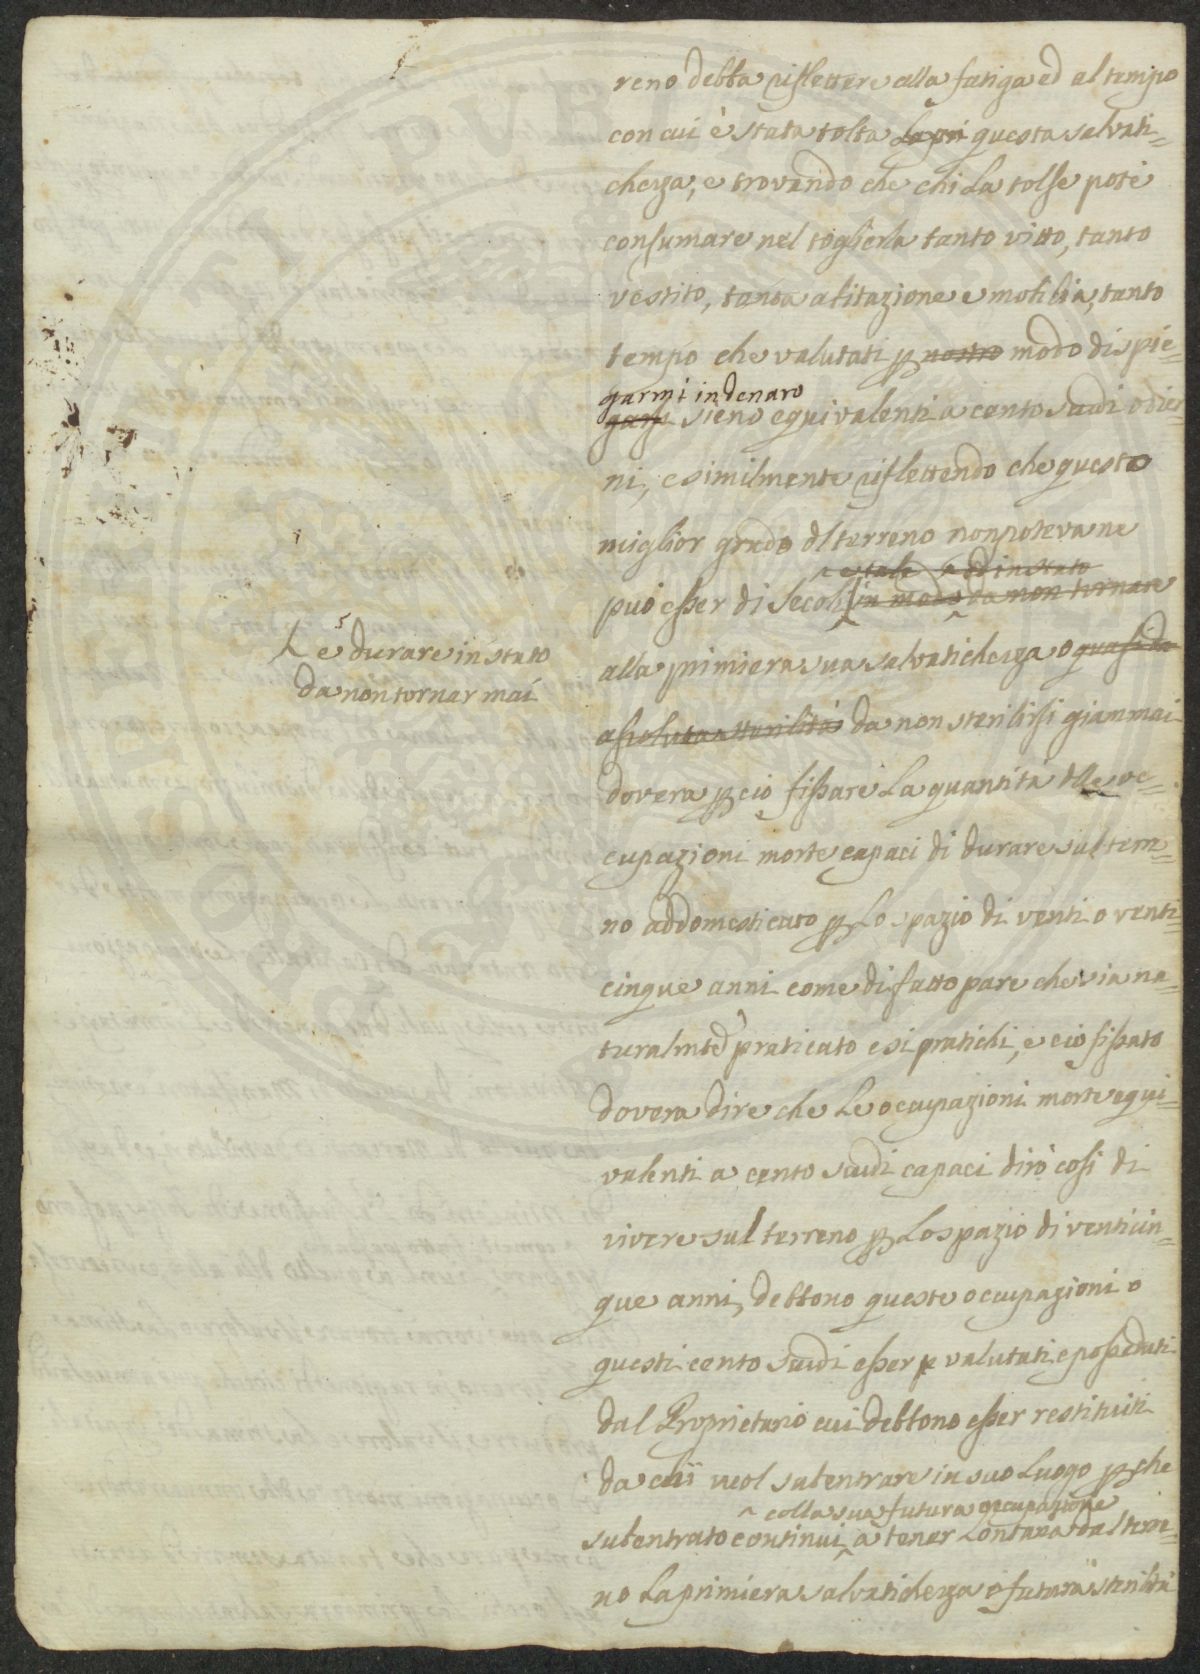 reno debba riflettere alla fatiga ed al tempo
con cui è stata tolta La pri questa salvati=
chezza, e trovando che chi La tolse potè
consumare nel toglierla tanto vitto, tanto
vestito, tanta abitazione e mobilia, tanto
tempo che valutati p nostro modo di spie=
garmi in denaro
sieno equivalenti a cento scudi odier=
ni, e similmente riflettendo che questo
miglior grado dl terreno non poteva ne
e tale ed in stato
può esser di Secoli in modo da non tornare
Le durare in stato
da non tornar mai
alla primiera sua salvatichezza o quasi da
assoluta sterilità da non sterilirsi giammai
dovera p ciò fissare La quantità dlle oc=
cupazioni morte capaci di durare sul terre=
no addomesticato p Lo spazio di venti o venti=
cinque anni come di fatto pare che sia na=
turalmte praticato e si pratichi, e ciò fissato
dovera dire che Le occupazioni morte equi=
valenti a cento scudi capaci dirò cosi di
vivere sul terreno p Lo spazio di venticin=
que anni, debbono queste occupazioni o
questi cento scudi esser valutati e posseduti
dal Proprietario cui debbono esser restituiti
da chi vuol subentrare in suo Luogo p che
colla sua futura occupazione
subentrato continui a tener Lontana dal terre=
no La primiera salvatichezza o futura sterilità